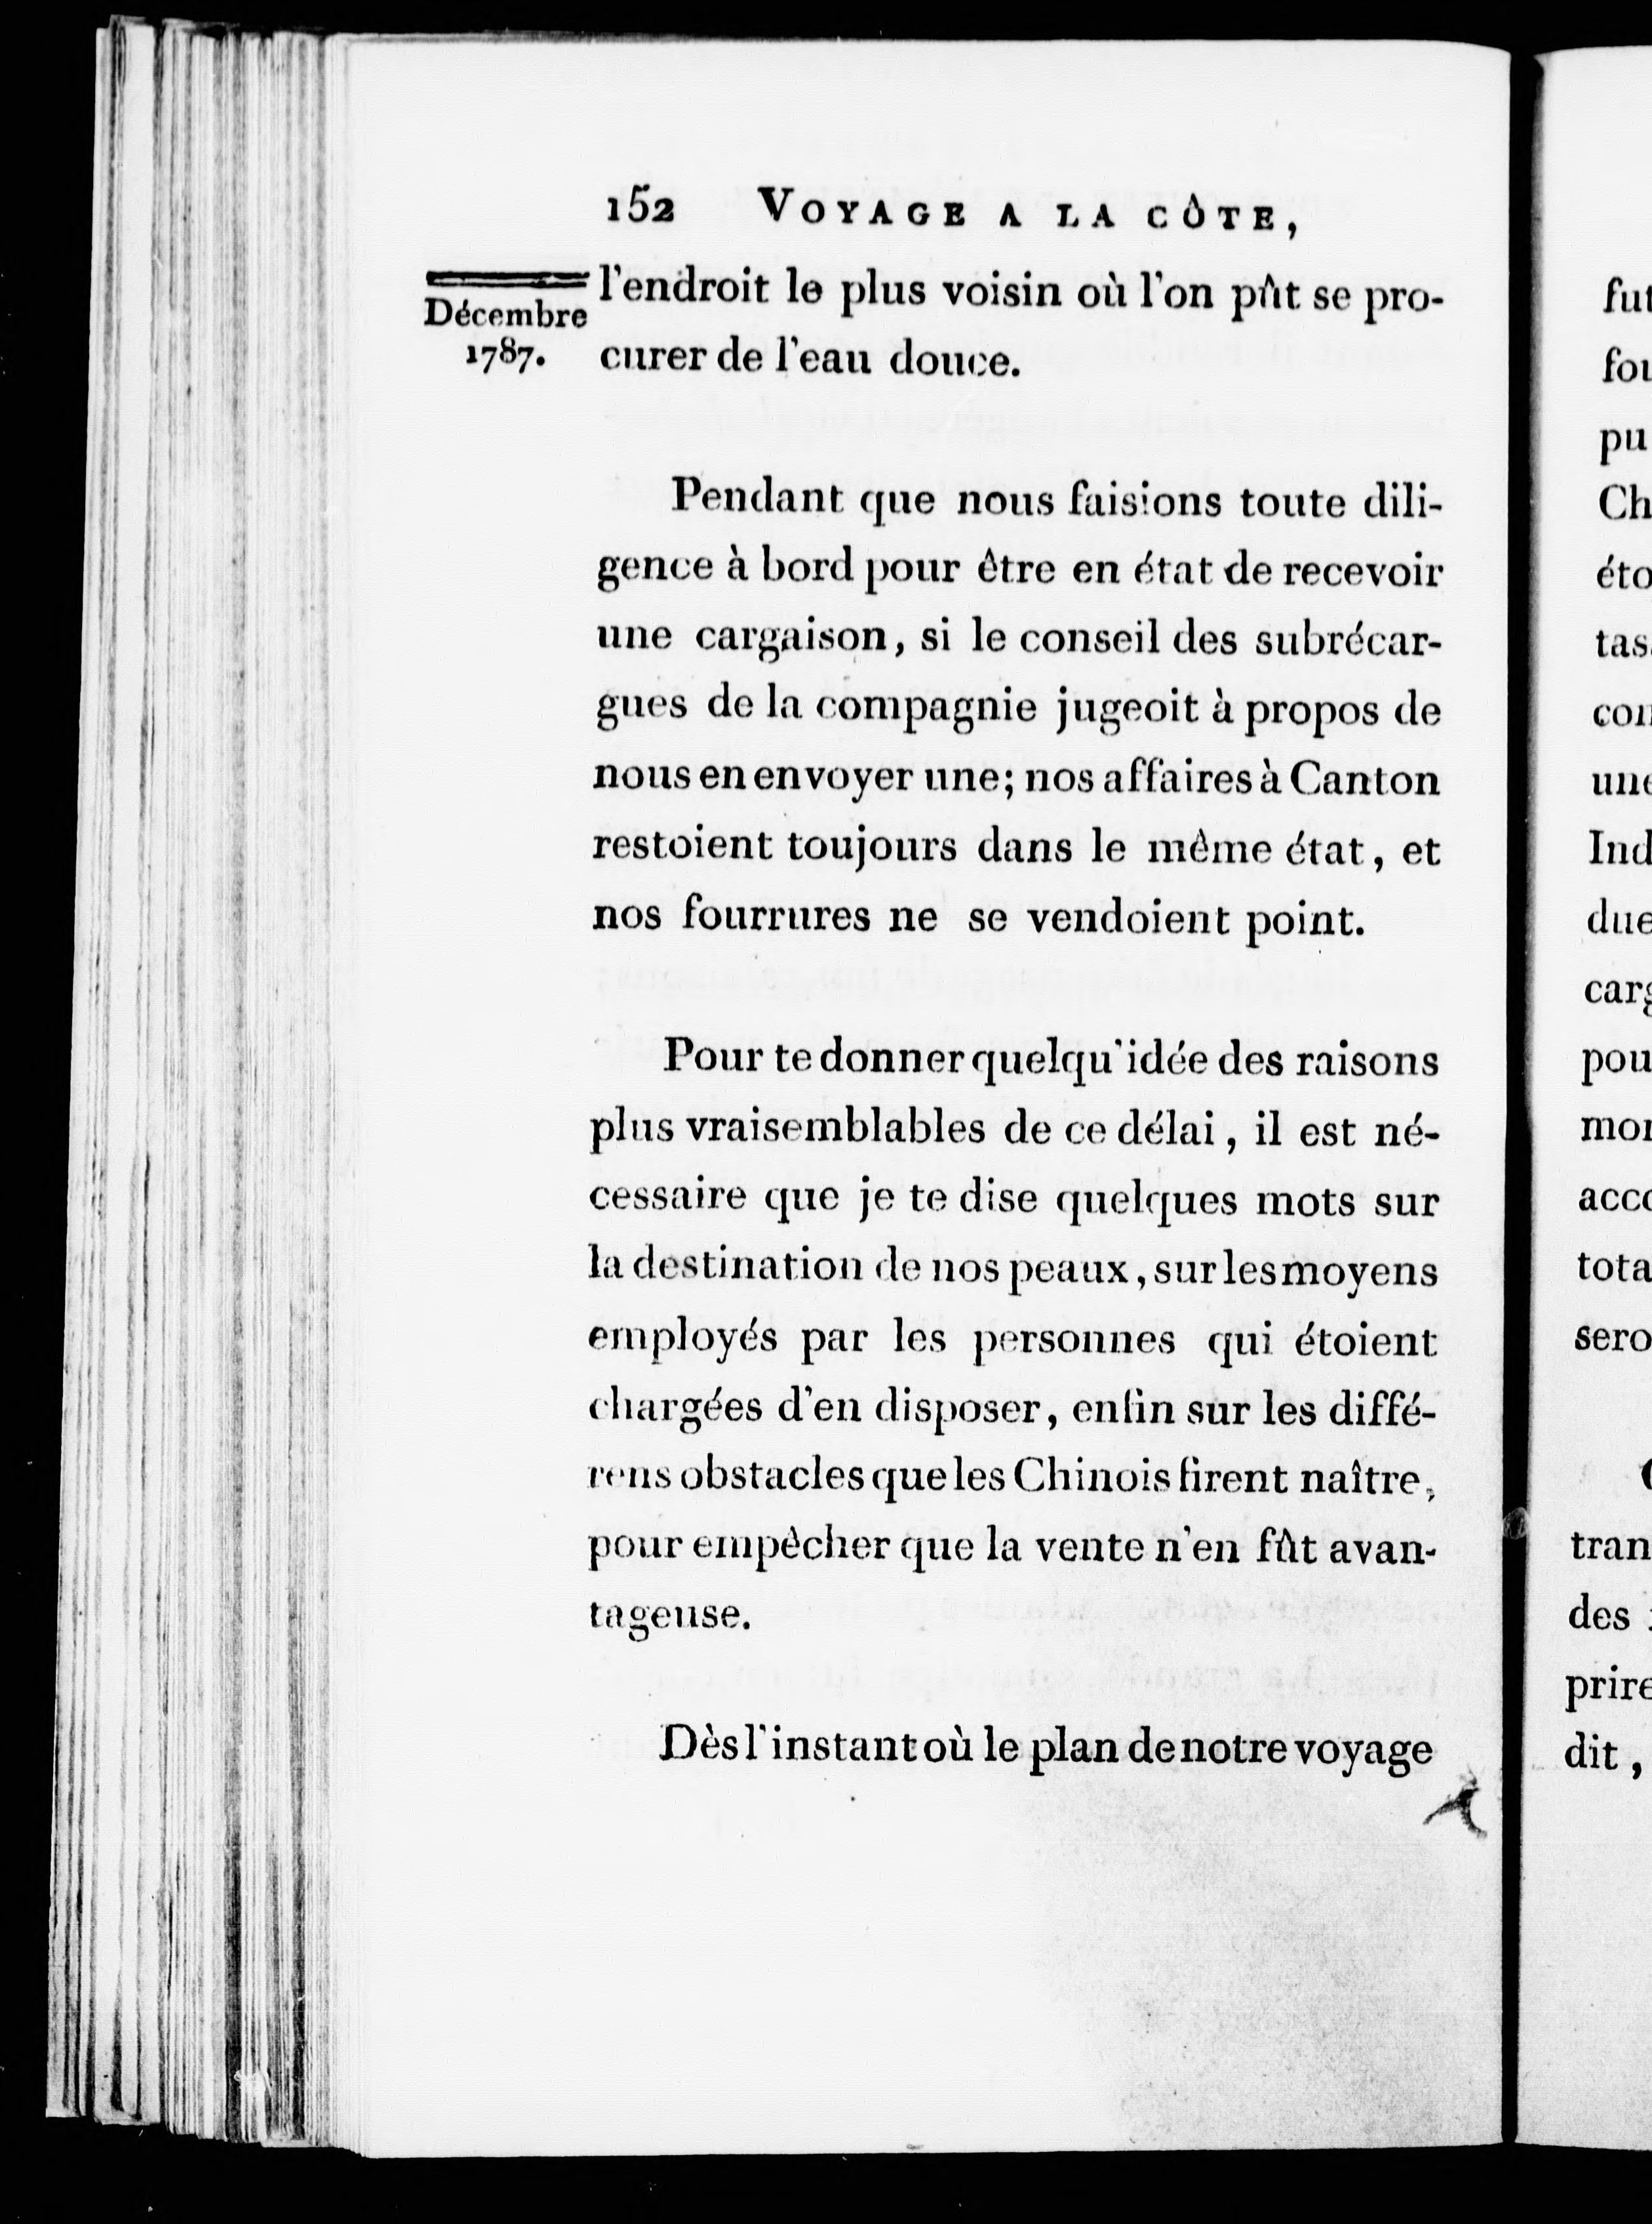 152 VOYAGE A LA CÔTE,
Décembre
1787.
l'endroit le plus voisin où l'on pût se pro-
curer de l'eau douce.
Pendant que nous faisions toute dili-
gence à bord pour être en état de recevoir
une cargaison, si le conseil des subrécar-
gues de la compagnie jugeoit à propos de
nous en envoyer une; nos affaires à Canton
restoient toujours dans le même état, et
nos fourrures ne se vendoient point.
Pour te donner quelqu'idée des raisons
plus vraisemblables de ce délai, il est né-
cessaire que je te dise quelques mots sur
la destination de nos peaux, sur les moyens
employés par les personnes qui étoient
chargées d'en disposer, enfin sur les diffé-
rens obstacles que les Chinois firent naître,
pour empêcher que la vente n'en fût avan-
tageuse.
Dès l'instant où le plan de notre voyage
fut
fou
pu
Ch
éto
tas
con
une
Ind
due
carg
pou
mon
acco
tota
sero
tran
des
prire
dit,